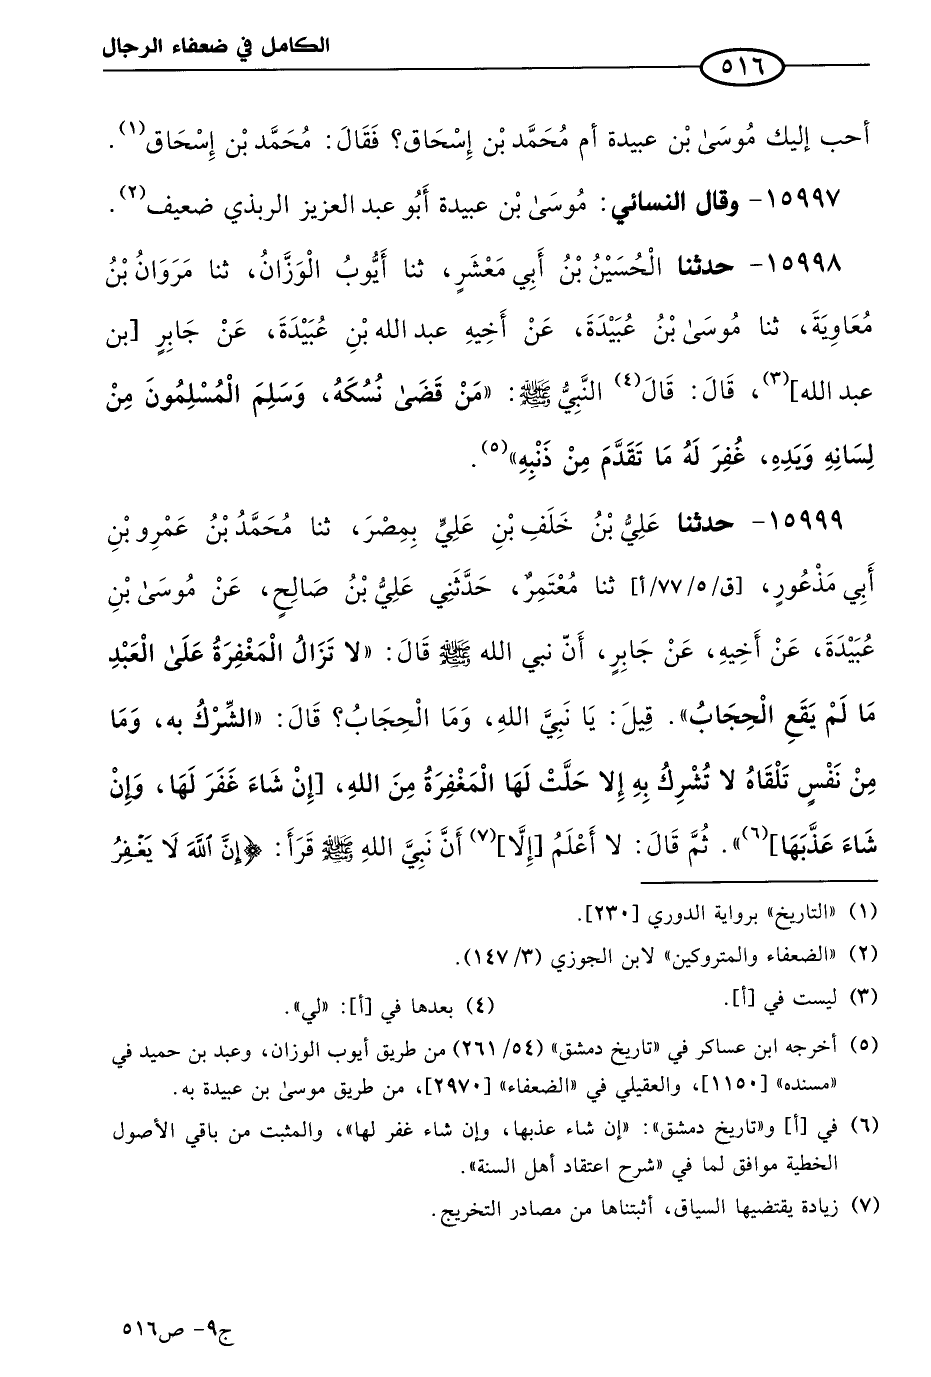 الكامل في ضعفاء الرجال
٥١٦
أحب إليك مُوسَىٰ بْن عبيدة أم مُحَمَّد بْن إِسْحَاق؟ فَقَالَ: مُحَمَّد بْن إِسْحَاق(١).
١٥٩٩٧- وقال النسائي: مُوسَىٰ بْن عبيدة أَبُو عبد العزيز الربذي ضعيف(٢).
١٥٩٩٨- حدثنا الْحُسَيْنُ بْنُ أَبِي مَعْشَرٍ، ثنا أَيُّوبُ الْوَزَّانُ، ثنا مَرَوَانُ بْنُ
مُعَاوِيَةَ، ثنا مُوسَىٰ بْنُ عُبَيْدَةَ، عَنْ أَخِيهِ عبد الله بْنِ عُبَيْدَةَ، عَنْ جَابِرٍ [بن
عبد الله](٣)، قَالَ: قَالَ(٤) النَّبِيُّ ﷺ: «مَنْ قَضَىٰ نُسُكَهُ، وَسَلِمَ الْمُسْلِمُونَ مِنْ
لِسَانِهِ وَيَدِهِ، غُفِرَ لَهُ مَا تَقَدَّمَ مِنْ ذَنْبِهِ»(٥).
١٥٩٩٩- حدثنا عَلِيُّ بْنُ خَلَفِ بْنِ عَلِيٍّ بِمِصْرَ، ثنا مُحَمَّدُ بْنُ عَمْرِو بْنِ
أَبِي مَذْعُورٍ، [ق/٧٧/٥/أ] ثنا مُعْتَمِرٌ، حَدَّثَنِي عَلِيُّ بْنُ صَالِحٍ، عَنْ مُوسَىٰ بْنِ
عُبَيْدَةَ، عَنْ أَخِيهِ، عَنْ جَابِرٍ، أَنّ نبي الله ﷺ قَالَ: «لا تَزَالُ الْمَغْفِرَةُ عَلَىٰ الْعَبْدِ
مَا لَمْ يَقَعِ الْحِجَابُ». قِيلَ: يَا نَبِيَّ اللهِ، وَمَا الْحِجَابُ؟ قَالَ: «الشِّرْكُ به، وَمَا
مِنْ نَفْسٍ تَلْقَاهُ لا تُشْرِكُ بِهِ إِلا حَلَّتْ لَهَا الْمَغْفِرَةُ مِنَ اللهِ، [إِنْ شَاءَ غَفَرَ لَهَا، وَإِنْ
شَاءَ عَذَّبَهَا](٦)». ثُمَّ قَالَ: لا أَعْلَمُ [إِلَّا](٧) أَنَّ نَبِيَّ اللهِ ﷺ قَرَأَ: ﴿إِنَّ ٱللَّهَ لَا يَغْفِرُ
(١) «التاريخ» برواية الدوري [٢٣٠].
(٢) «الضعفاء والمتروكين» لابن الجوزي (١٤٧/٣).
(٣) ليست في [أ]. (٤) بعدها في [أ]: «لي».
(٥) أخرجه ابن عساكر في «تاريخ دمشق» (٢٦١/٥٤) من طريق أيوب الوزان، وعبد بن حميد في
«مسنده» [١١٥٠]، والعقيلي في «الضعفاء» [٢٩٧٠]، من طريق موسىٰ بن عبيدة به.
(٦) في [أ] و«تاريخ دمشق»: «إن شاء عذبها، وإن شاء غفر لها»، والمثبت من باقي الأصول
الخطية موافق لما في «شرح اعتقاد أهل السنة».
(٧) زيادة يقتضيها السياق، أثبتناها من مصادر التخريج.
ج٩- ص٥١٦